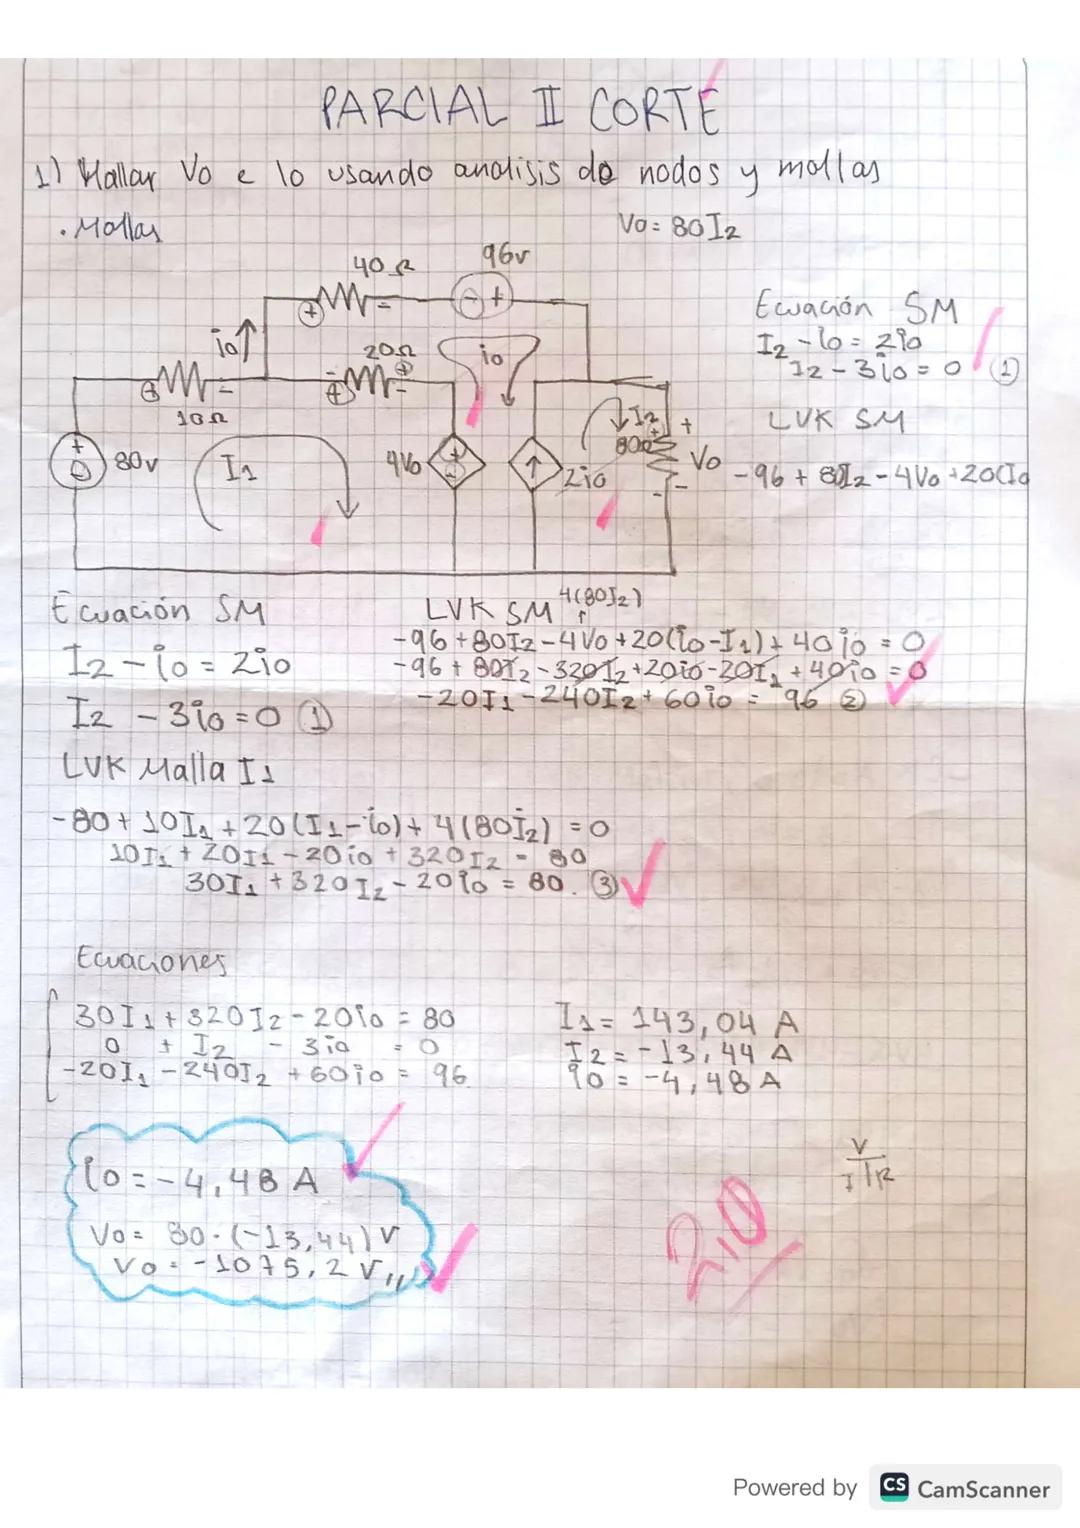 PARCIAL II CORTE
1) Hallar Vo e io usando analisis de nodos y mallas
. Mallas
Vo = 80I2
40 Ω
96v
- +
+ -
io
20Ω
io
+ -
10Ω
+ -
80v
I1
4Vo
2io
I2
80Ω
+
Vo
-
Ecuación SM
I2 - io = 2io
I2 - 3io = 0 (1)
LVK SM
-96 + 80I2 - 4Vo + 20(Io
Ecuación SM
I2 - io = 2io
I2 - 3io = 0 (1)
LVK SM 4(80I2)
-96 + 80I2 - 4Vo + 20(io - I1) + 40io = 0
-96 + 80I2 - 320I2 + 20io - 20I1 + 40io = 0
-20I1 - 240I2 + 60io = 96 (2)
LVK Malla I1
-80 + 10I1 + 20(I1 - io) + 4(80I2) = 0
10I1 + 20I1 - 20io + 320I2 = 80
30I1 + 320I2 - 20io = 80. (3)
Ecuaciones
30I1 + 320I2 - 20io = 80
0 + I2 - 3io = 0
-20I1 - 240I2 + 60io = 96
I1 = 143,04 A
I2 = -13,44 A
io = -4,48 A
io = -4,48 A
Vo = 80 · (-13,44) V
Vo = -1075,2 V,,
V
I | R
2,0
Powered by CS CamScanner